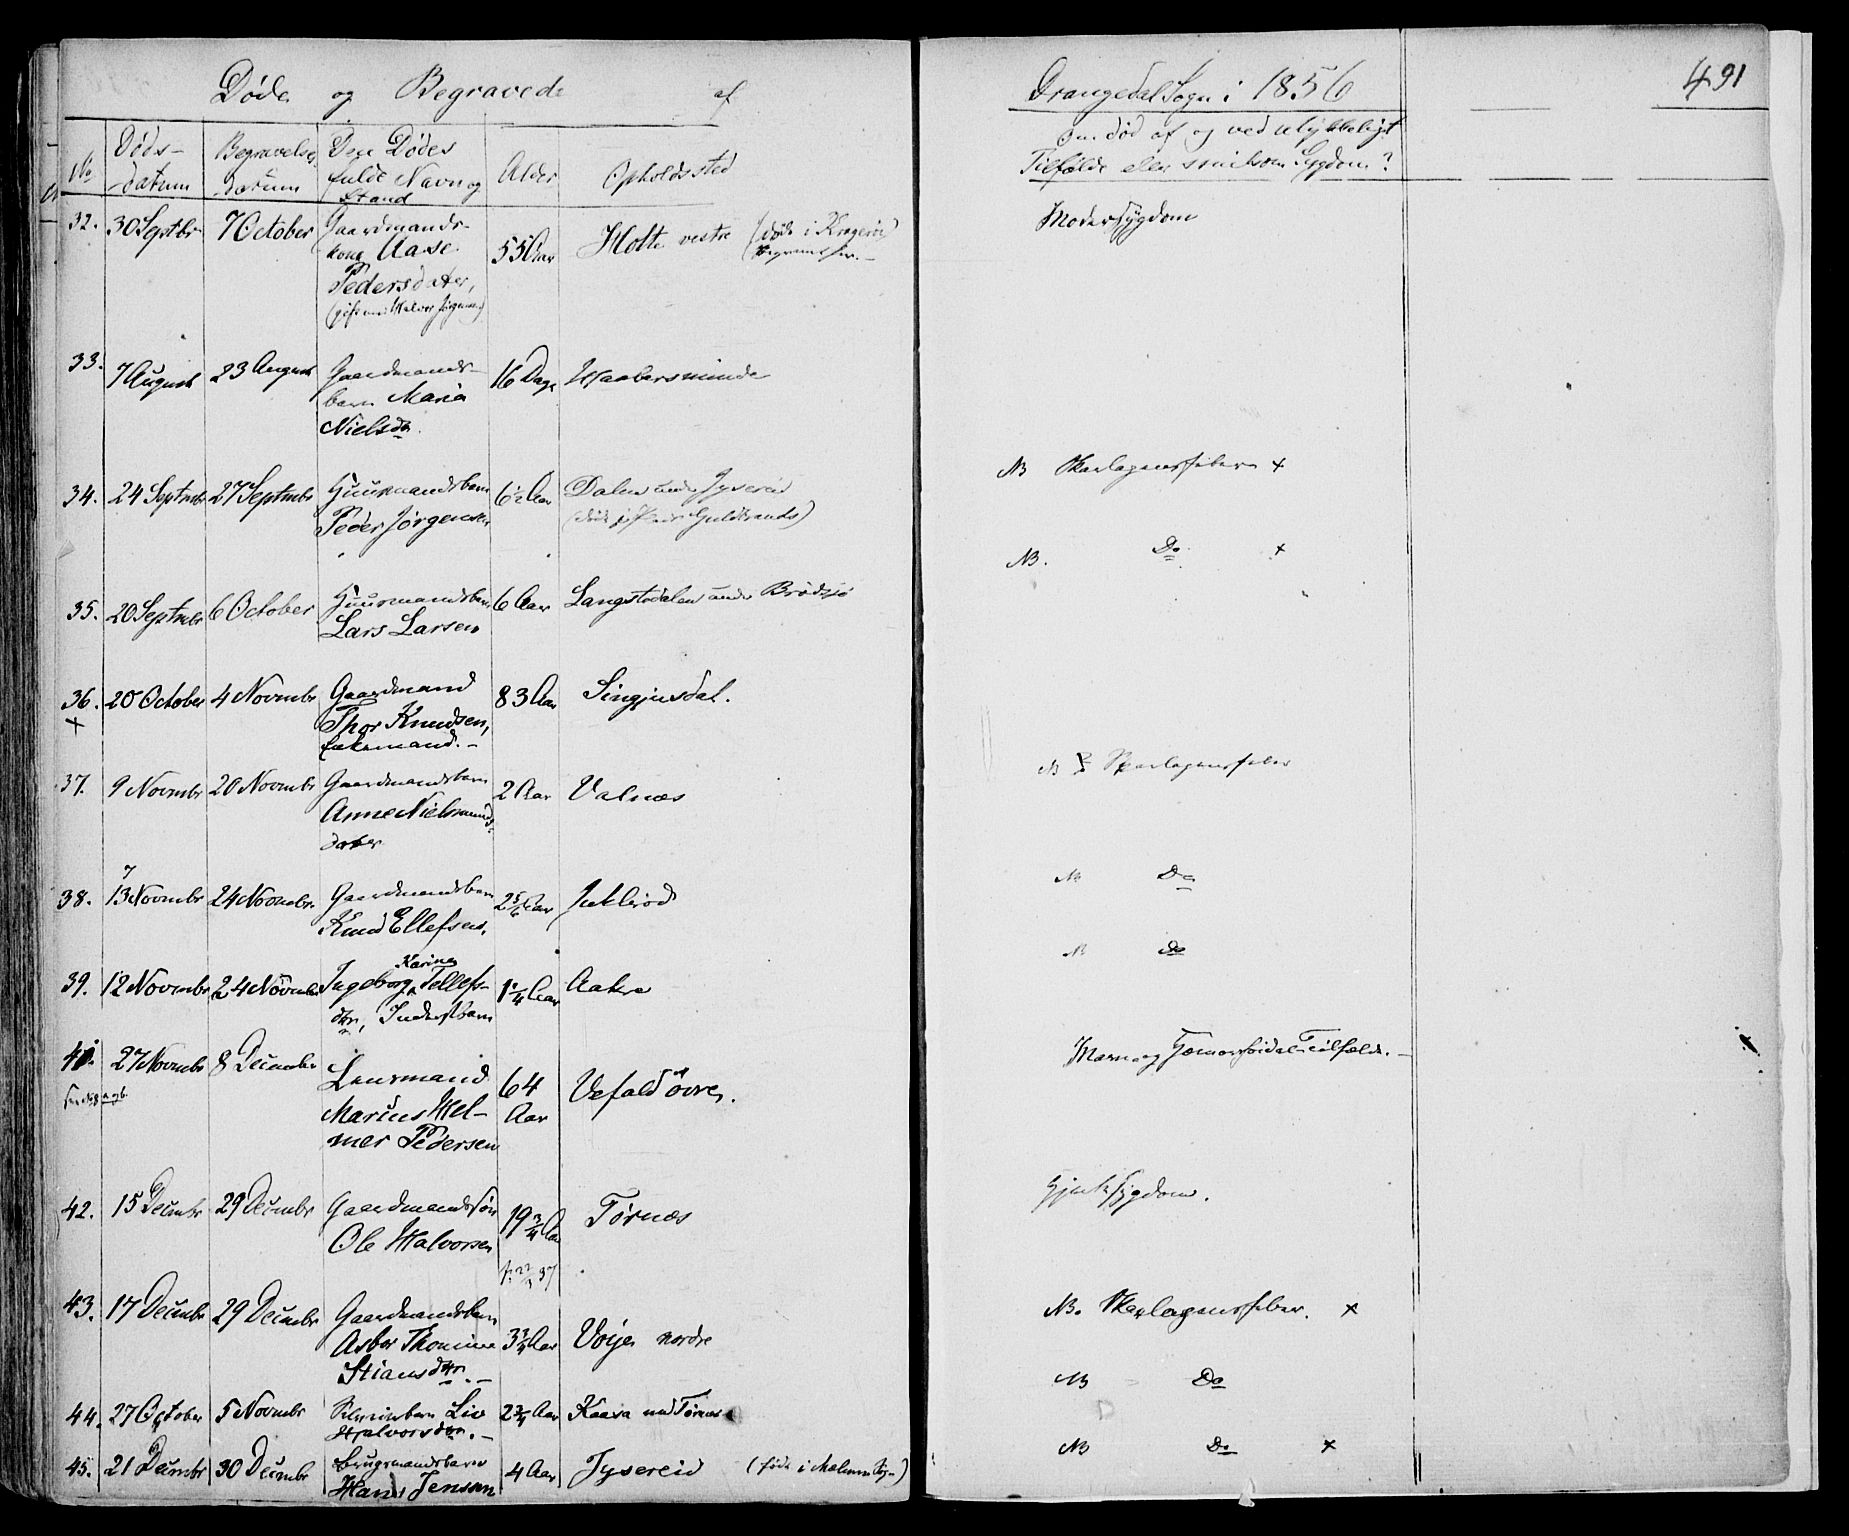 Døde og Begravede af
Drangedal Sogn i 1856
491
No
Døds-
datum
Begravelses
datum
Den Dødes
fulde Navn og
Stand
Alder
Opholdssted
Om død af og ved ulykkeligt
Tilfælde eller smitsom Sygdom?
32. 30 Septbr 7 October Gaardmands-
kone Aase
Pedersdatter,
55 Aar Holte vestre (døde i Kragerø
Modersygdom
33. 7 August 23 August Gaardmands-
barn Maria
Nielsdtr.
16 Dage Haabersminde
34. 24 Septmbr 27 Septmbr Huusmandsbarn
Peder Jørgensen
6½ Aar Dalen under Jysereid
NB Skarlagensfeber +
35. 20 Septmbr 6 October Huusmandsbarn
Lars Larsen
6 Aar Langstødalen under Brødsjø
NB. Do +
36. 20 October 4 Novmbr Gaardmand
+
Thor Knudsen,
Enkemand. -
83 Aar Singjusdal.
37. 9 Novmbr 20 Novmbr Gaardmandsbarn
Anne Nielsmunds-
datter
2 Aar Valnæs
NB Skarlagensfeber
38. 13 Novmbr 24 Novmbr. Gaardmandsbarn
7
Knud Ellefsen.
2 5/6 Aar
N Do
39. 12 Novmbr 24 Novmbr Ingeborg Karine Tellefs-
dtr, Inderstbarn
1¼ Aar Aakre
N Do
27 Novmbr 8 Decmber Lensmand
Marius Hel-
mer Pedersen
64
Aar
Vefald øvre.
Tilfælde. -
42. 15 Decmbr 29 Decmbr Gaardmandssøn
Ole Halvorsen
19¾ Aar
Tørnæs
37
Sygdom.
43. 17 Decmbr 29 Decmbr Gaardmandsbarn
Asber Thomine
Stiansdtr. -
3¾ Aar Voje nordre
NB. Skarlagensfeber. +
44. 27 October 5 Novmbr Liv
Halvorsdtr. -
2¾ Aar Kaasa under Tørnæs
NB Do
45. 21 Decmbr 30 Decmbr Brugsmandsbarn
Hans Jensen
4 Aar Jysereid (født i
NB Do +